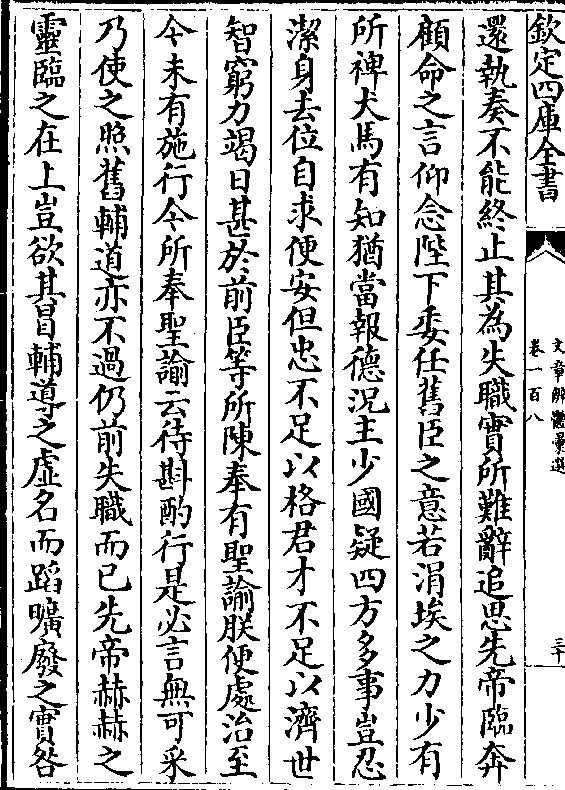 欽定四庫全書
文章辨體彙選
卷一百八
三十
還執奏不能終止其為失職實所難辭追思先帝臨奔
顧命之言仰念陛下委任舊臣之意若涓埃之力少有
所裨犬馬有知猶當報德况主少國疑四方多事豈忍
潔身去位自求便安但忠不足以格君才不足以濟世
智窮力竭日甚於前臣等所陳奉有聖諭朕便處治至
今未有施行今所奉聖諭云待斟酌行是必言無可采
乃使之照舊輔道亦不過仍前失職而已先帝赫赫之
靈臨之在上豈欲其冒輔導之虛名而蹈曠廢之實咎